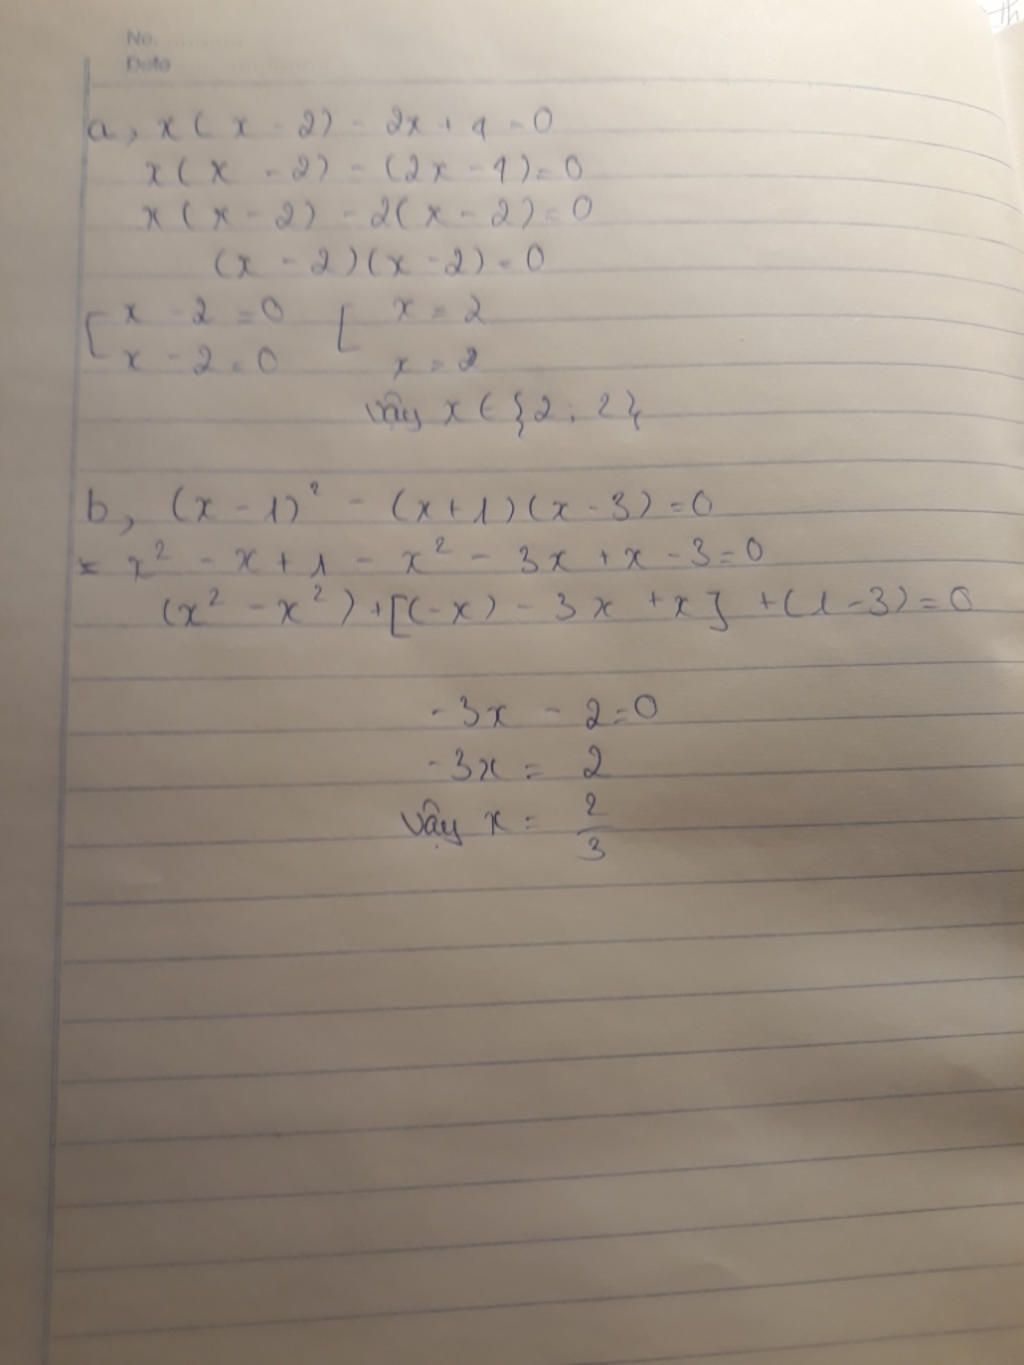 No.
Date
a, x(x - 2) - 2x + 4 = 0
x(x - 2) - (2x - 4) = 0
x(x - 2) - 2(x - 2) = 0
(x - 2)(x - 2) = 0
[ x - 2 = 0 [ x = 2
x - 2 = 0 x = 2
Vậy x ∈ {2; 2}
b, (x - 1)² - (x + 1)(x - 3) = 0
= x² - x + 1 - x² - 3x + x - 3 = 0
(x² - x²) + [(-x) - 3x + x] + (1 - 3) = 0
-3x - 2 = 0
-3x = 2
Vậy x = 2/3